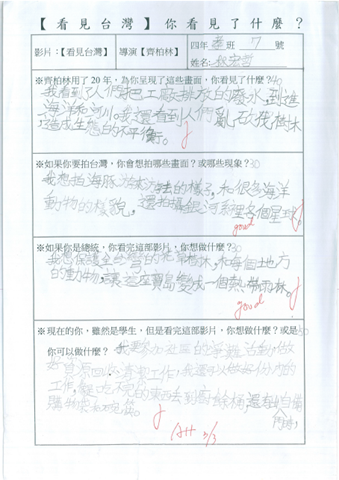 【看見台灣】你看見了什麼?
影片:【看見台灣】 導演【齊柏林】 四年 班 7 號
姓名:
※齊柏林用了20年,為你呈現了這些畫面,你看見了什麼?
我看到了人們把工廠排放的廢水,到進
海洋和河川。我還看到人們亂 樹木
造成生態的不平衡。
※如果你要拍台灣,你會想拍哪些畫面?或哪些現象?30
我想拍海豚 的樣子,和很多海洋
動物的樣貌,還拍攝銀河系 各個星球。
good
※如果你是總統,你看完這部影片,你想做什麼?30
我想保護全世 的 樹林,和每個地方
的動物,讓這座寶島變成一個熱帶雨林。
good
※現在的你,雖然是學生,但是看完這部影片,你想做什麼?或是50
你可以做什麼? 我要參加社區的淨灘活動,做
好資源回收 工作,我還可以做好份內的
工作, 吃不完的東西去到廚餘桶,還有自備
購物袋和
5/3